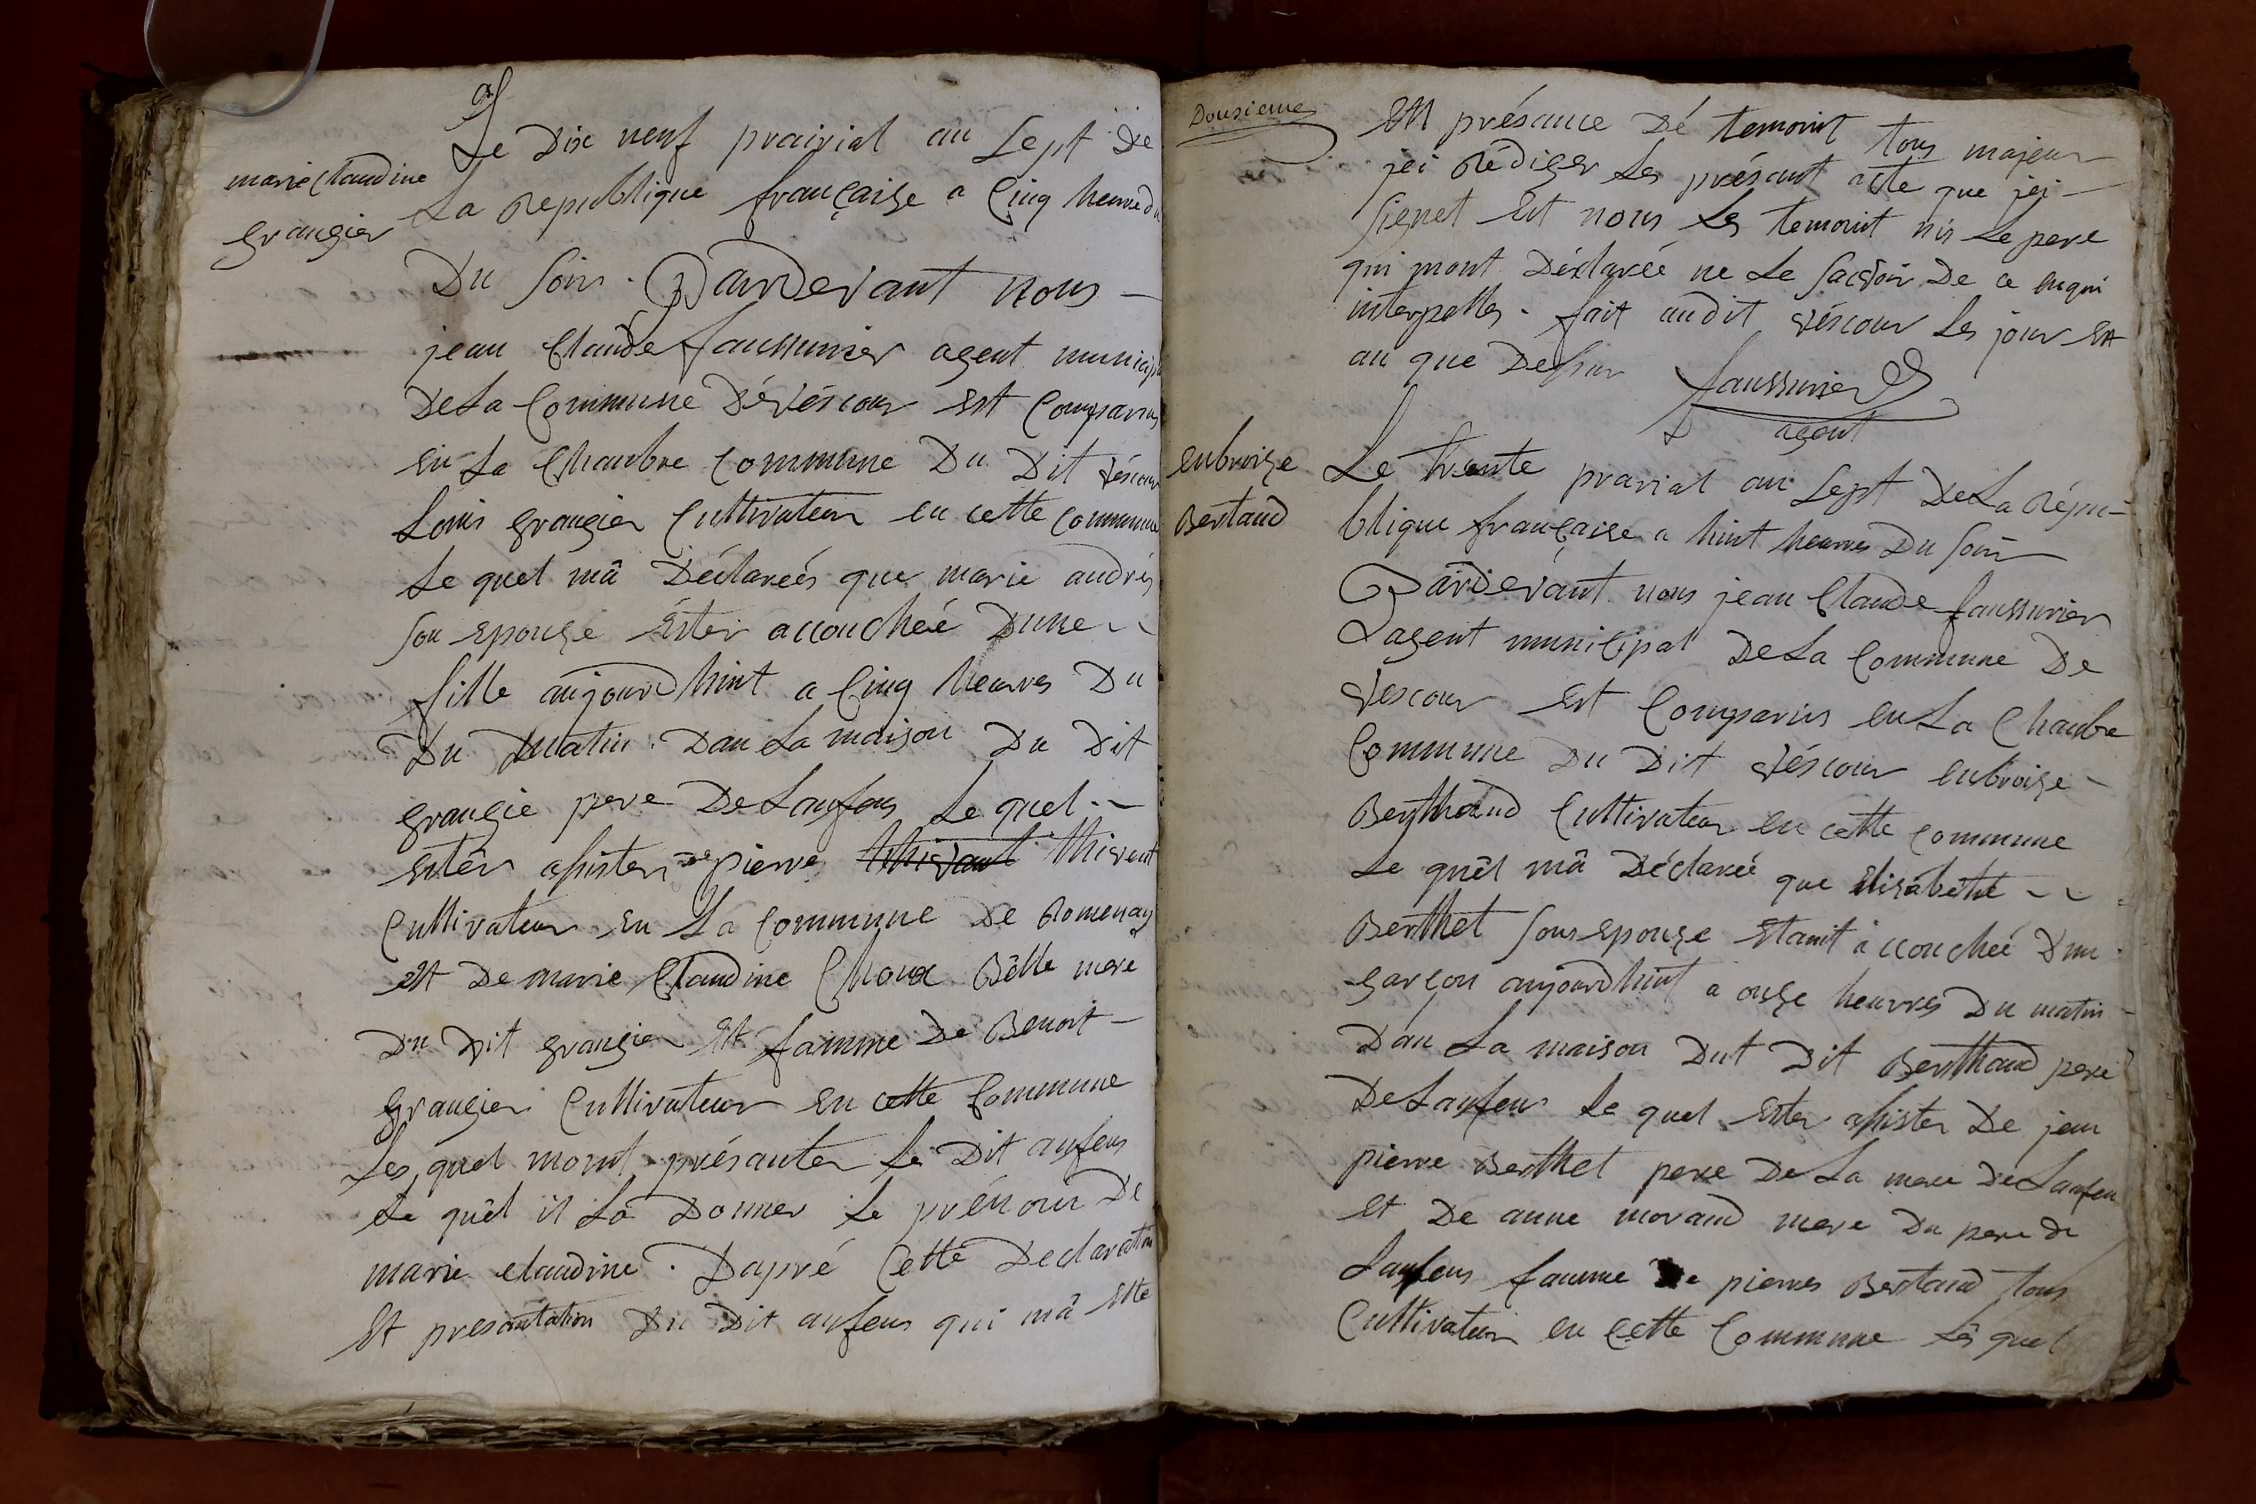 marie Claudine
grangier
Le Dix neuf prairial an Sept De
La Republique française a Cinq heure du
Du soir. Pardevant nous
jean Claude faussurier agent municipal
De La Commune Dévéscour est Comparus
en La Chambre Commune Du Dit véscour
Louis grangier Cultivateur en cette Commune
Le quel mâ Déclareés que marie andrés
son epouse Ester accouchéé Dune
fille aujourdhint a Cinq heures Du
Du Matin. Dan La maison Du Dit
grangie pere De Lanfens Le quel
Estér assister de pierre thievant thievent
Cultivateur en La Commune De Romenay
et De marie Claudine Choux Bélle mere
Du Dit grangier et famme De Benoit
grangier Cultivateur en cette Commune
Les quel mont présanter Le Dit anfens
Le quél il Lâ Donner Le prénom De
marie claudine. Dapré Cette Declaration
Et presantation Du Dit anfens qui mâ Ette
Dousieme
En présance Dé temoint tous majeur
jei Rédiger Les présant acte que jei
signet Et nous Les temoint nis Le pere
qui mont Déclareé ne Le sacvoir De ce enqui
interpelles. fait audit véscour Les jour Et
an que Dessur
faussurier
agent
enbroize
Bertaud
Le trente prairial an Sept De La Répu-
blique française a huit heures Du soir
Pardevant nous jean Claude faussurier
Lagent municipal De La Commune De
vescour Est Comparus en La Chambre
Commune Du Dit véscour enbroize
Berthaud Cultivateur en cette commune
Le quél mâ Déclareé que Elisabéthe
Berthet sons epouse Etant accouchéé Dun
garçon aujourdhint a onze heures Du matin
Dan La maison Dut Dit Berthaud pere
De Lanfens Le quel Ester assister De jean
pierre Berthet pere De La mere De Lanfen
Et De anne morand mere Du pere de
Lanfens famme De pierres Bertaud tous
Cultivateur en Cette Commune Lés quel